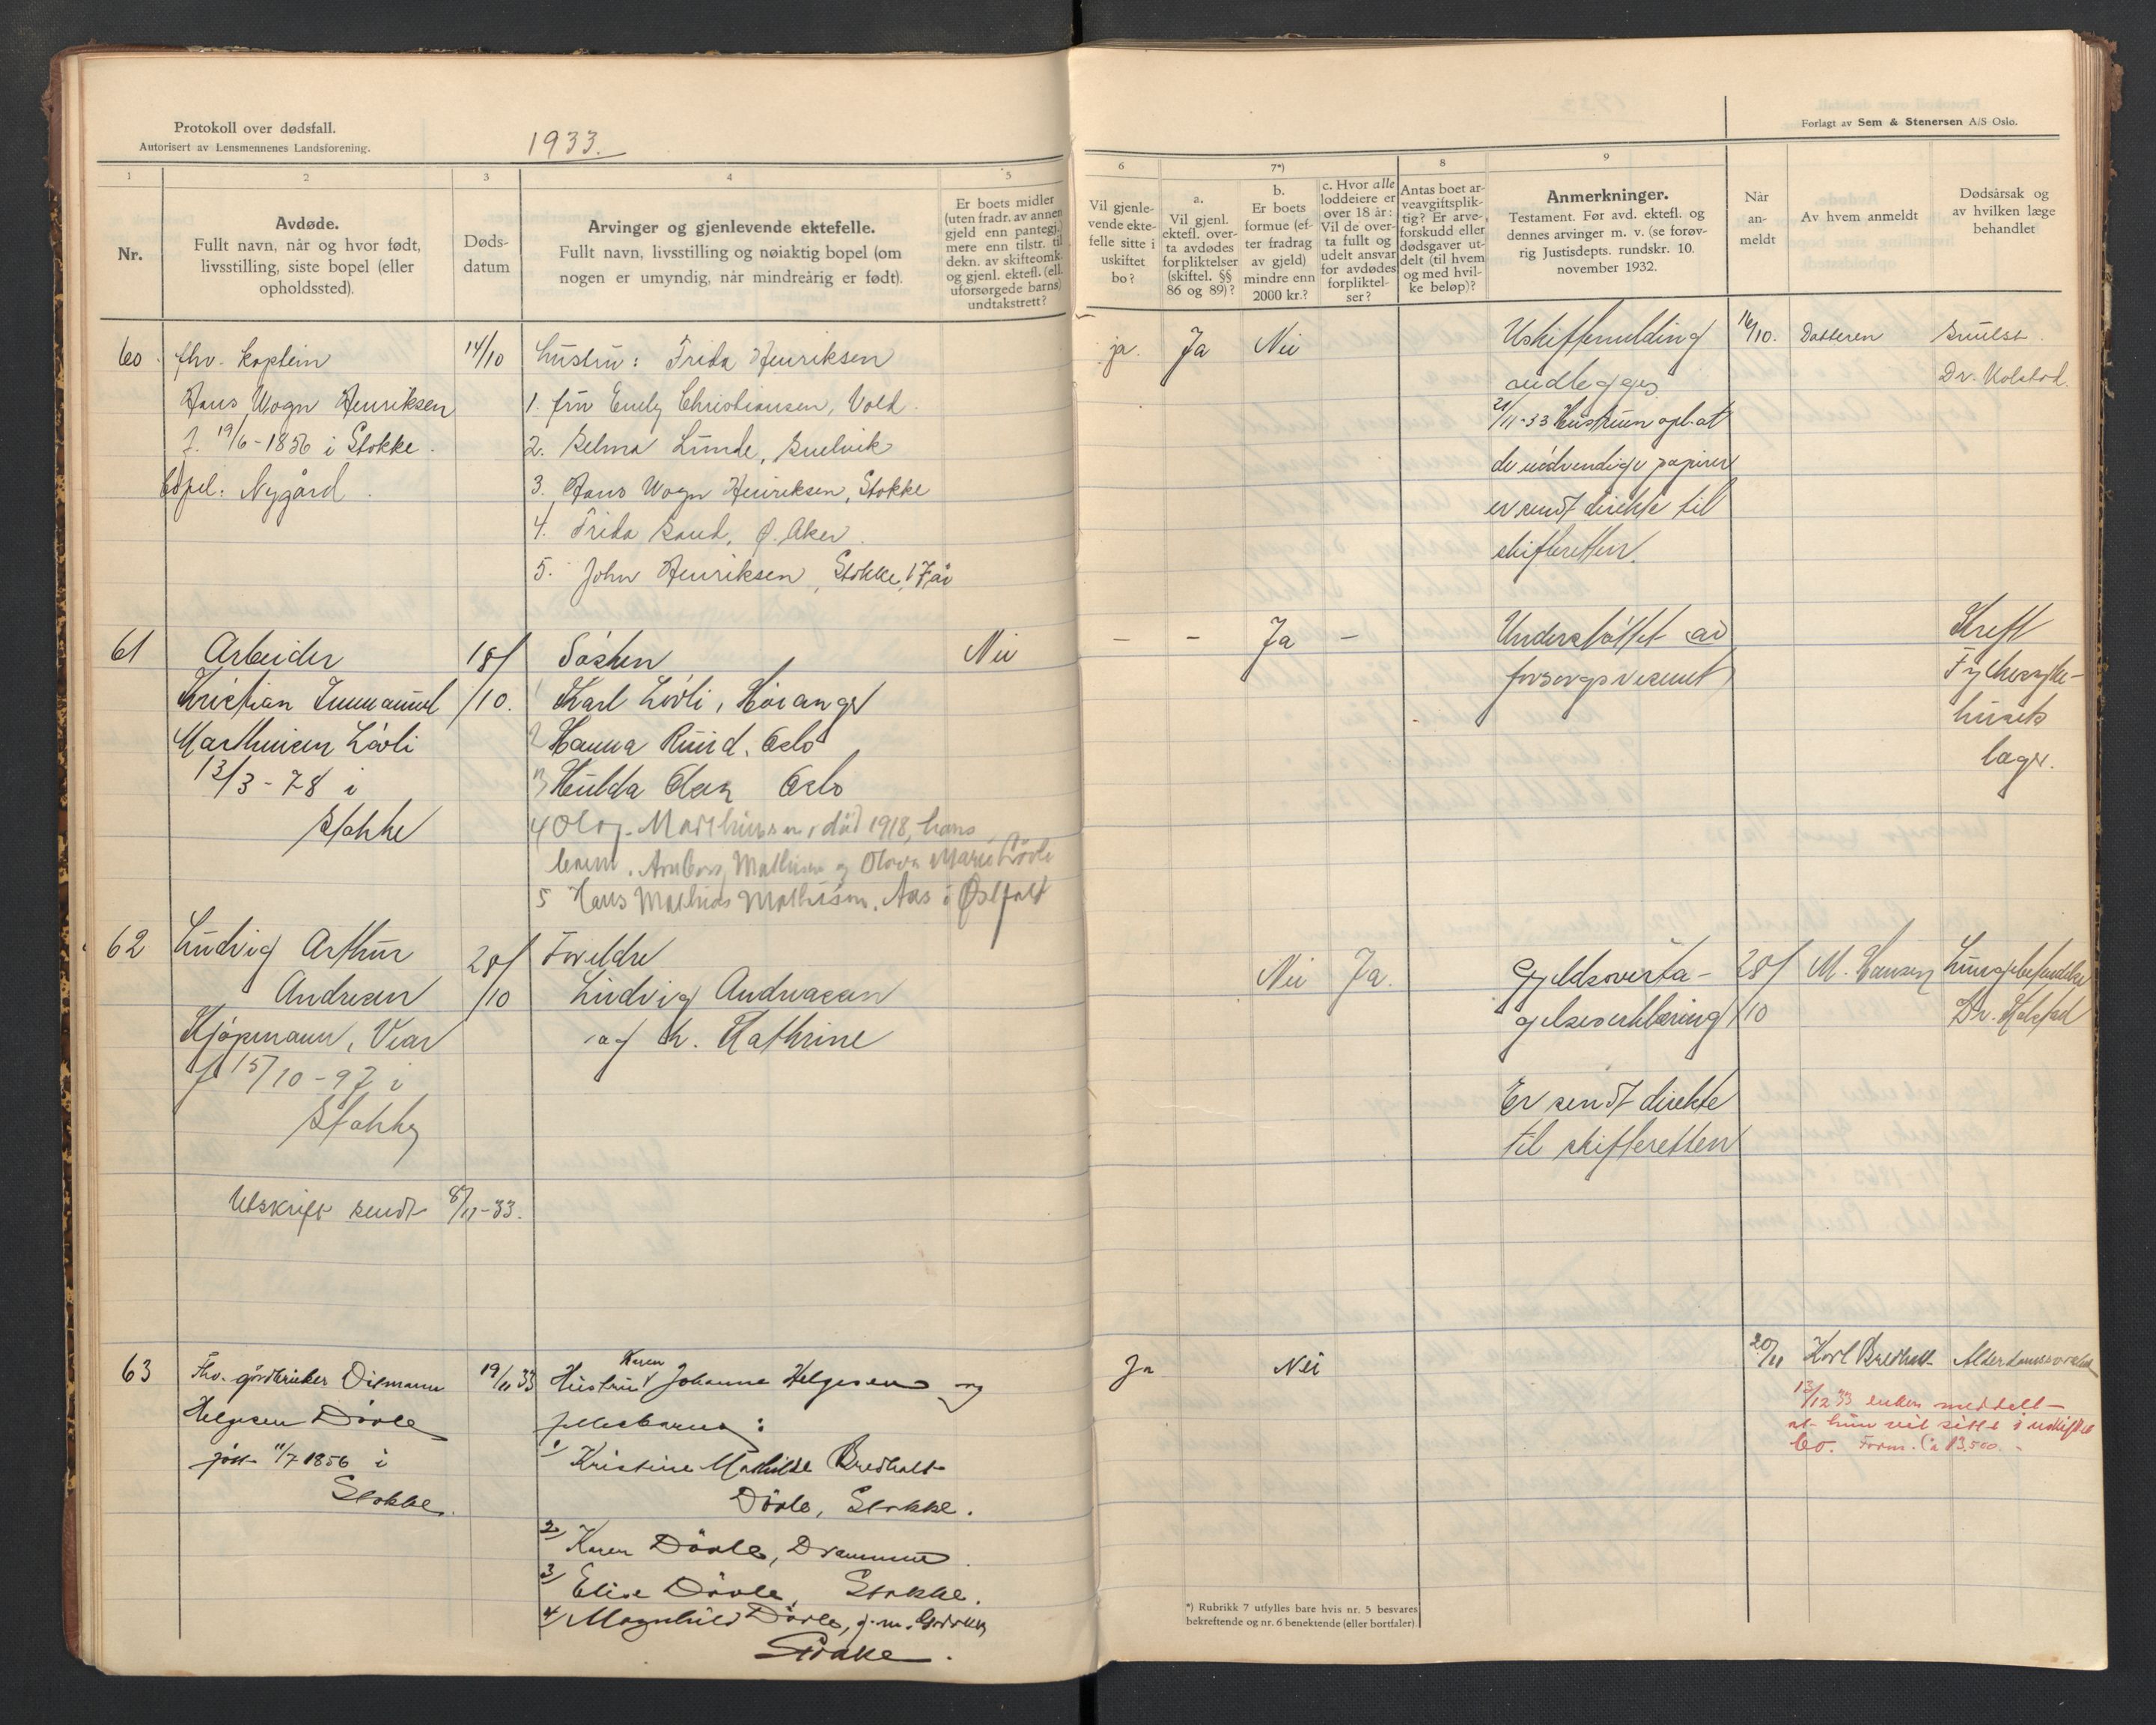 Protokoll over dødsfall.
Autorisert av Lensmennenes Landsforening.
1933.
Forlagt av Sem & Stenersen A/S Oslo.
1
2
3
4
5
6
7*)
8
9
Nr.
Avdøde.
Fullt navn, når og hvor født,
livsstilling, siste bopel (eller
opholdssted).
Døds-
datum
Arvinger og gjenlevende ektefelle.
Fullt navn, livsstilling og nøiaktig bopel (om
nogen er umyndig, når mindreårig er født).
Er boets midler
(uten fradr. av annen
gjeld enn pantegj.)
mere enn tilstr. til
dekn. av skifteomk.
og gjenl. ektefl. (ell.
uforsørgede barns)
undtakstrett?
Vil gjenle-
vende ekte-
felle sitte i
uskiftet
bo?
a.
Vil gjenl.
ektefl. over-
ta avdødes
forpliktelser
(skiftel. §§
86 og 89)?
b.
Er boets
formue (ef-
ter fradrag
av gjeld)
mindre enn
2000 kr.?
c. Hvor alle
loddeiere er
over 18 år:
Vil de over-
ta fullt og
udelt ansvar
for avdødes
forpliktel-
ser?
Antas boet ar-
veavgiftsplik-
tig? Er arve-
forskudd eller
dødsgaver ut-
delt (til hvem
og med hvil-
ke beløp)?
Anmerkninger.
Testament. Før avd. ektefl. og
dennes arvinger m. v. (se forøv-
rig Justisdepts. rundskr. 10.
november 1932.
Når
an-
meldt
Av hvem anmeldt
Dødsårsak og
av hvilken læge
behandlet
60.
fhv. kaptein
Hans Wogn Henriksen
f. 19/6-1856 i Stokke.
bopel: Nygård.
14/10
hustru: Frida Henriksen
1. fru Emely Christiansen, Vold.
2. Selma Lunde, Snelvik
3. Hans Wogn Henriksen, Stokke
4. Frida Sand, Ø. Aker.
5. John Henriksen, Stokke, 17 år
ja.
Ja
Nei
Uskiftemelding
vedlegges
21/11-33 Hustruen opl. at
de nödvendige papirer
er sendt direkte til
skifteretten.
16/10.
Datteren
Dr. Kolstad.
61
Arbeider
Kristian Immanuel
Marthinsen Lövli
13/3-78 i
Stokke
18/10.
Sösken
1 Karl Lövli,
2 Hanna Ruud, Oslo
3 Hulda Olsen Oslo
4 Olaf Marthinsen, död 1918, hans
barn. Mathisen og Olova Marie Lövli
5 Hans Mathias Mathisen, Aas i Östfold
Nei
-
-
Ja
-
Understöttet av
forsorgsvesenet
Kreft
Fylkessyke-
husets
læger.
62
Ludvig Arthur
Andresen
Kjöpmann, Vear
f 15/10-97 i
Stokke
Utskrift sendt 8/11-33.
28/10
Foreldre
Ludvig Andreasen
og h. Kathrine
Nei
Ja.
Gjeldsoverta-
gelseserklæring
Er sendt direkte
til skifteretten
28/10
M. Hansen
Lungebetendelse
Dr. Kolstad
63
Fhv. gårdbruker Ditmann
Helgesen Dövle
født 11/7 1856 i
Stokke.
19/11 33
Hustru Karen Johanne Helgesen og
fellesbarna:
1/ Kristine Mathilde Bredholt
Dövle, Stokke.
2/ Karen Dövle, Drammen.
3/ Elise Dövle, Stokke.
4/ Magnhild Dövle, g.m.
Stokke.
Ja
Nei
20/11
Karl Bredholt
Alderdomssvakhet
13/12 33 enken meddelt
at hun vil sitte i uskiftet
bo. Form. ca 13.500.-
*) Rubrikk 7 utfylles bare hvis nr. 5 besvares
bekreftende og nr. 6 benektende (eller bortfaler)